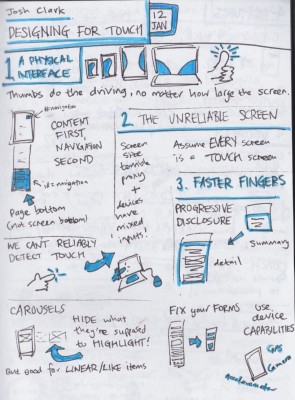 Josh Clark
DESIGNING FOR TOUCH
12
JAN
1 A PHYSICAL
INTERFACE
Thumbs do the driving, no matter how large the screen.
#navigation
CONTENT
FIRST,
NAVIGATION
SECOND
id=navigation
Page bottom
(not screen bottom)
2. THE UNRELIABLE SCREEN
Screen
size
terrible
proxy
+
devices
have
mixed
inputs!
Assume EVERY screen
is a TOUCH screen
3. FASTER FINGERS
PROGRESSIVE
DISCLOSURE
Summary
detail
WE CAN'T RELIABLY
DETECT TOUCH
CAROUSELS
HIDE what
they're supposed
to HIGHLIGHT!
But good for LINEAR/LIKE items
FIX your FORMS
USE
device
CAPABILITIES
GPS
Camera
Accelerometer